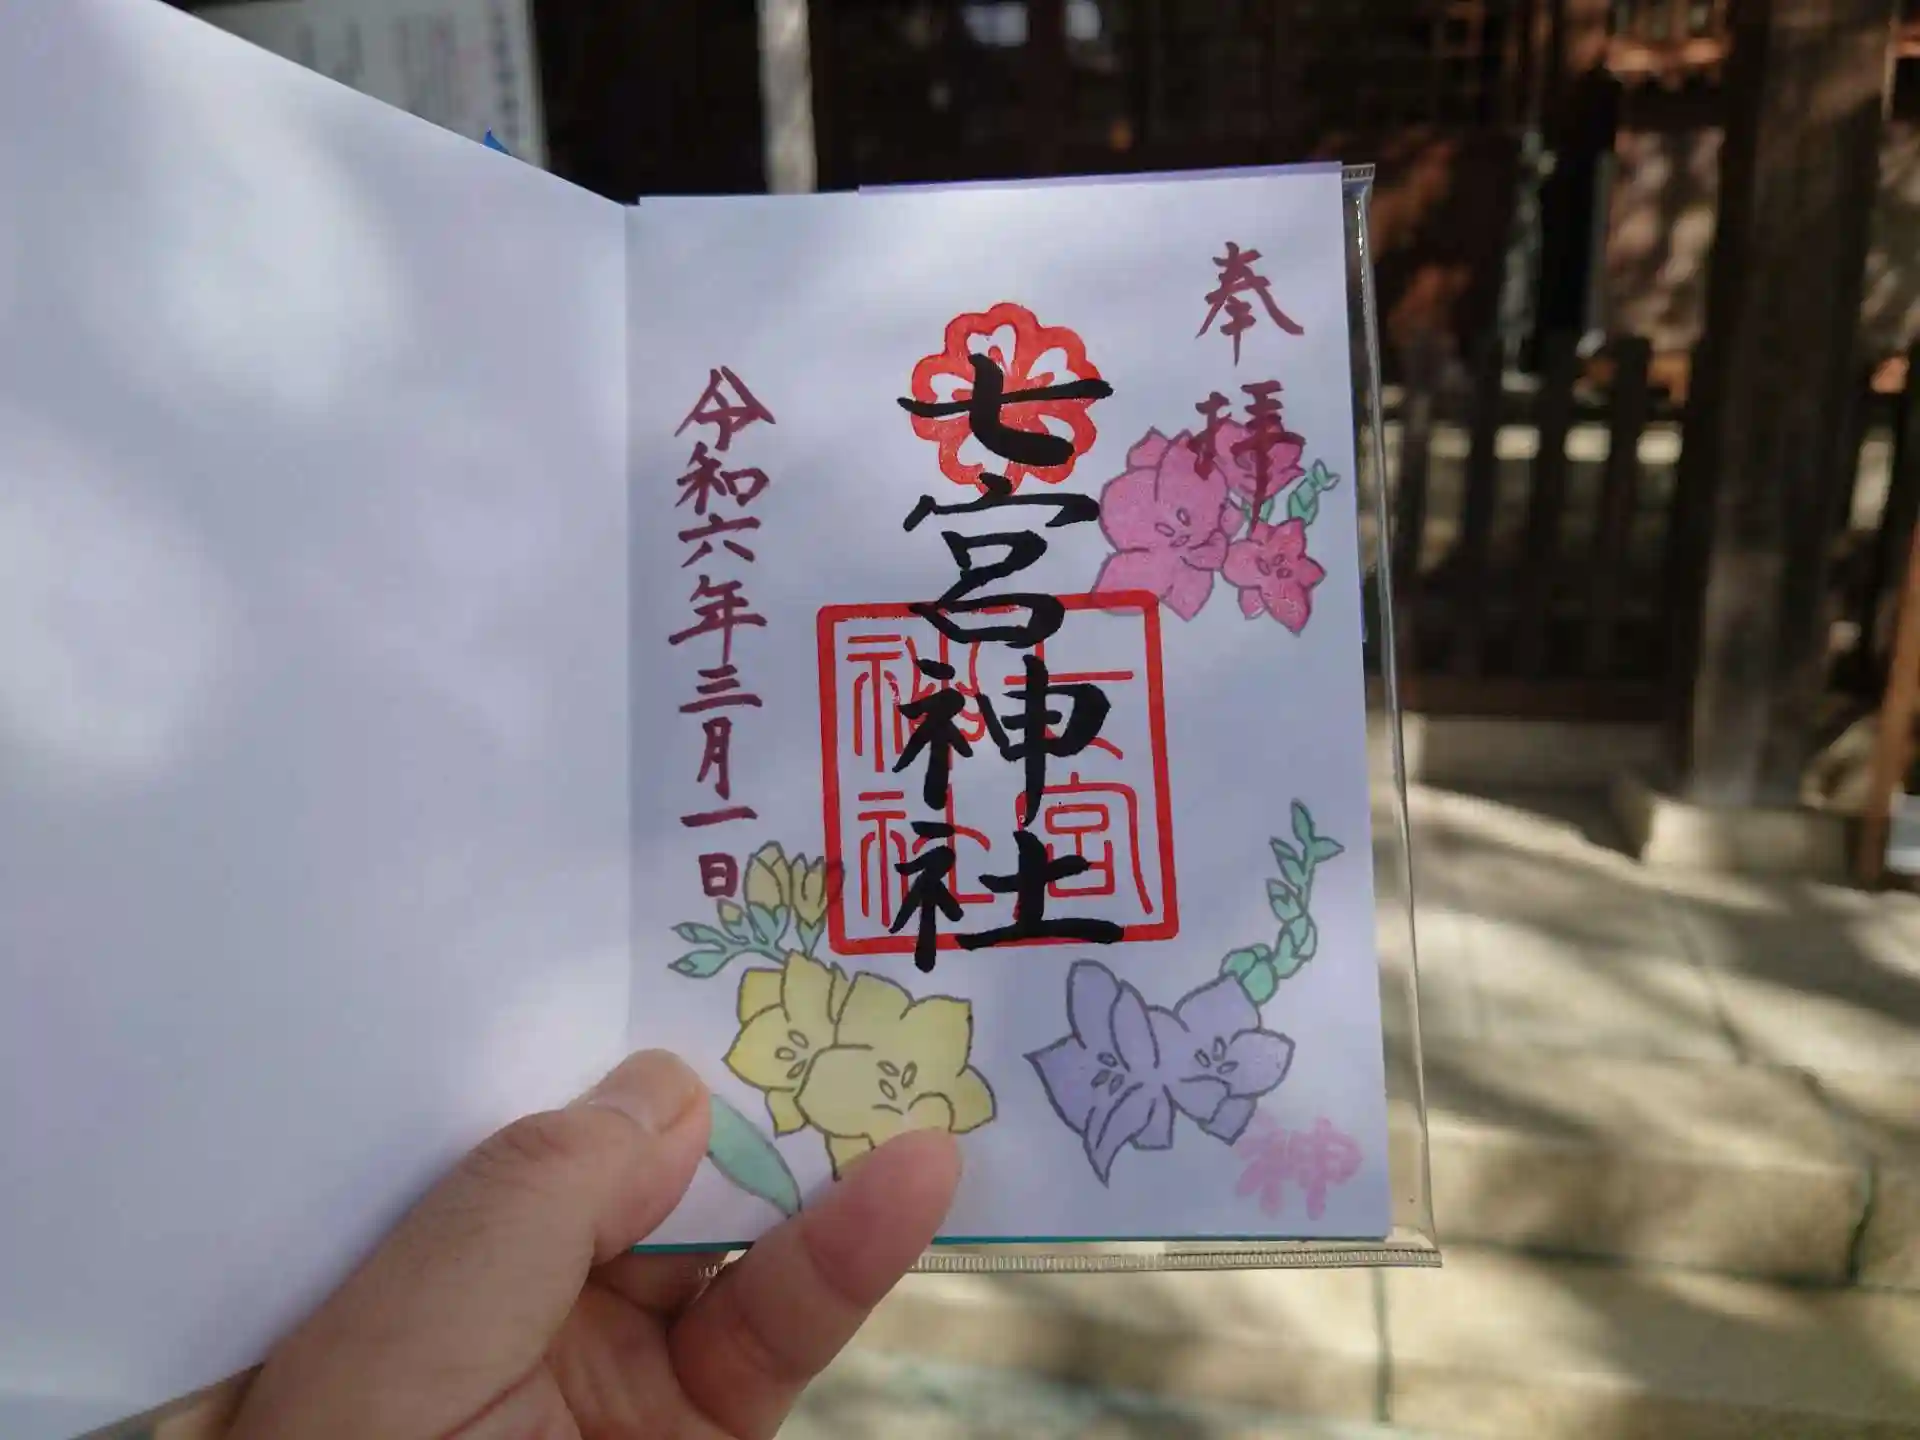 奉拝
七宮神社
七宮神社
令和六年三月一日
神